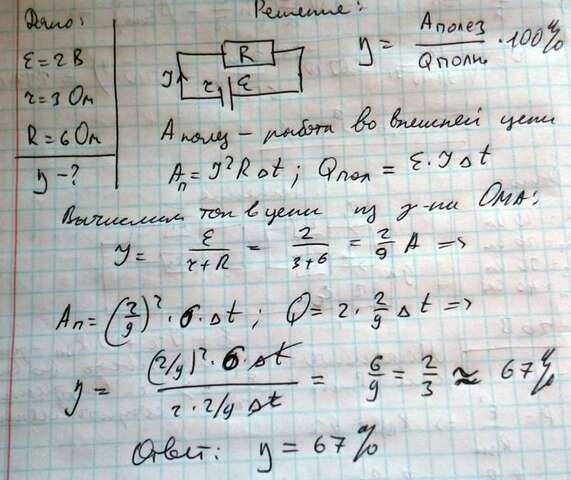 Дано:
ε = 2 В
r = 3 Ом
R = 6 Ом
η - ?
Решение:
R
I
r
ε
η = Aполез / Qполн · 100%
Aполез – работа во внешней цепи
Aп = I²RΔt ; Qпол = ε·IΔt
Вычислим ток в цепи из з-на Ома:
I = ε / (r+R) = 2 / (3+6) = 2/9 A =>
Aп = (2/9)² · 6 · Δt ; Q = 2 · 2/9 Δt =>
η = (2/9)² · 6 · Δt / (2 · 2/9 Δt) = 6/9 = 2/3 ≈ 67%
Ответ: η = 67%